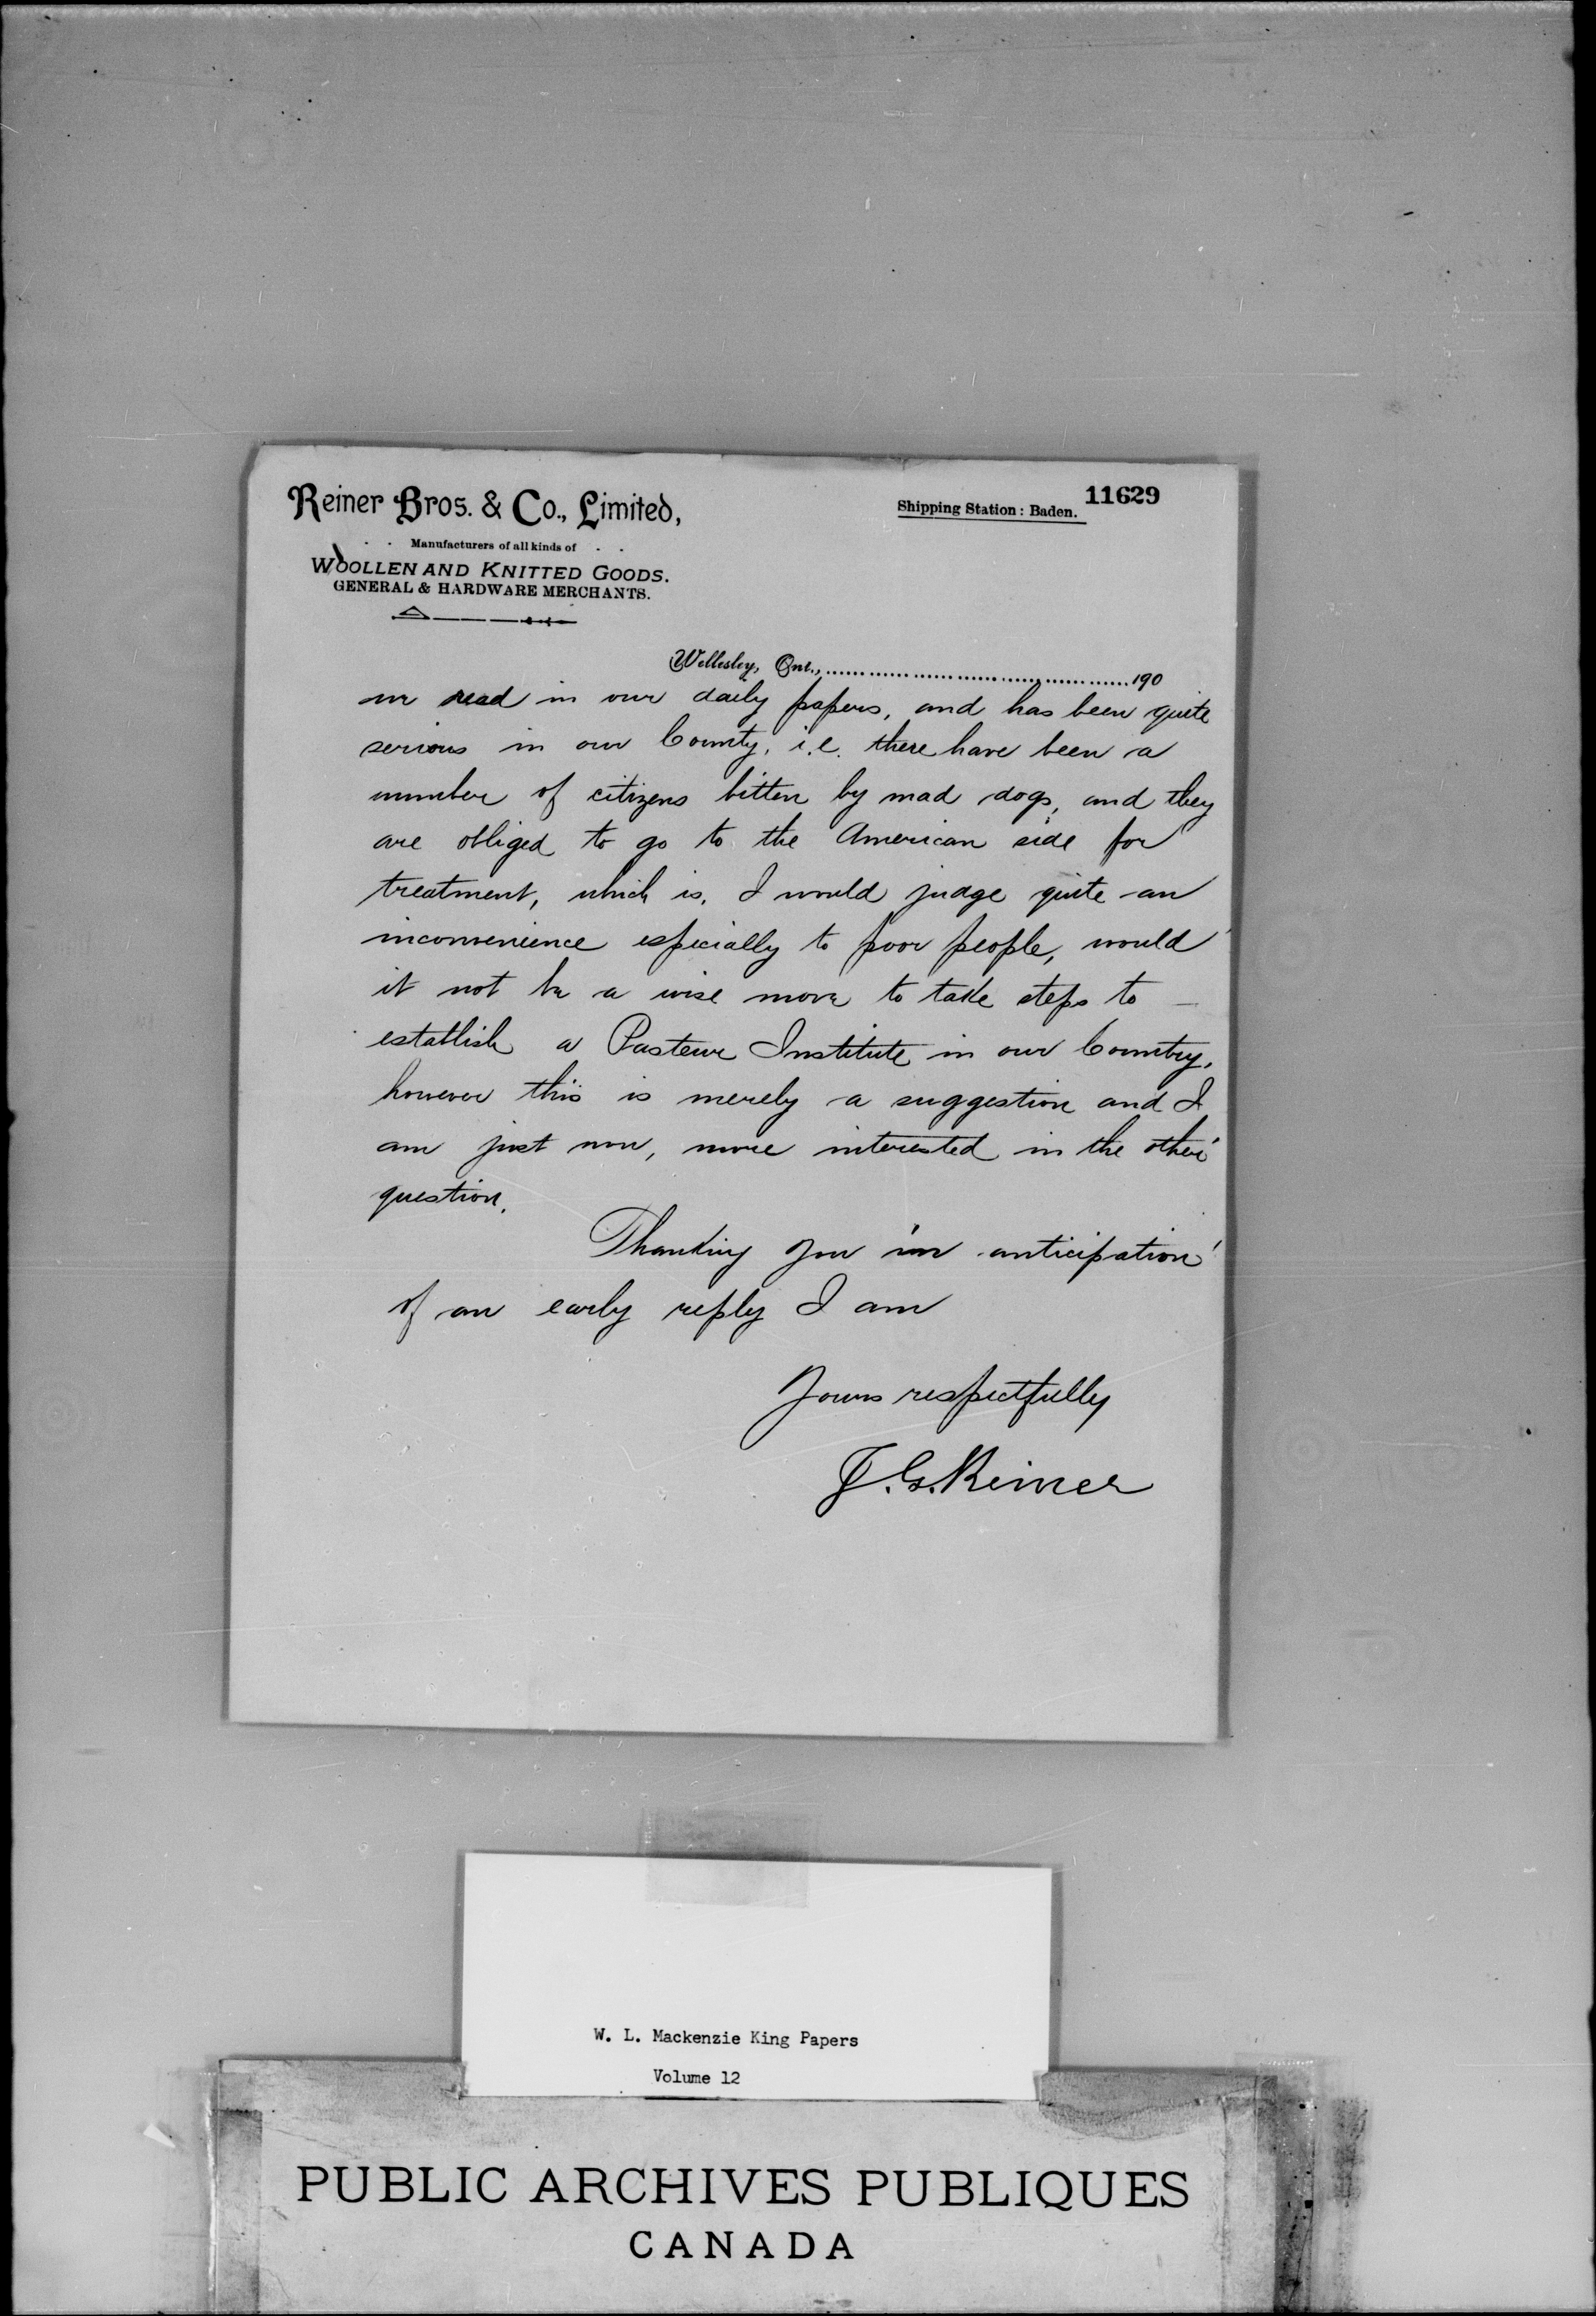 Reiner Bros. & Co., Limited,
Shipping Station: Baden. 11629
Manufacturers of all kinds of
WOOLLEN AND KNITTED GOODS.
GENERAL & HARDWARE MERCHANTS.
Wellesley, Ont., 190
we read in our daily papers, and has been quite
serious in our County, i.e. there have been a
number of citizens bitten by mad dogs, and they
are obliged to go to the American side for
treatment, which is, I would judge quite an
inconvenience especially to poor people, would
it not be a wise move to take steps to
establish a Pasteur Institute in our Country,
however this is merely a suggestion and I
am just now, more interested in the other
question.
Thanking you in anticipation
of an early reply I am
Yours respectfully
J. G. Reiner
W. L. Mackenzie King Papers
Volume 12
PUBLIC ARCHIVES PUBLIQUES
CANADA